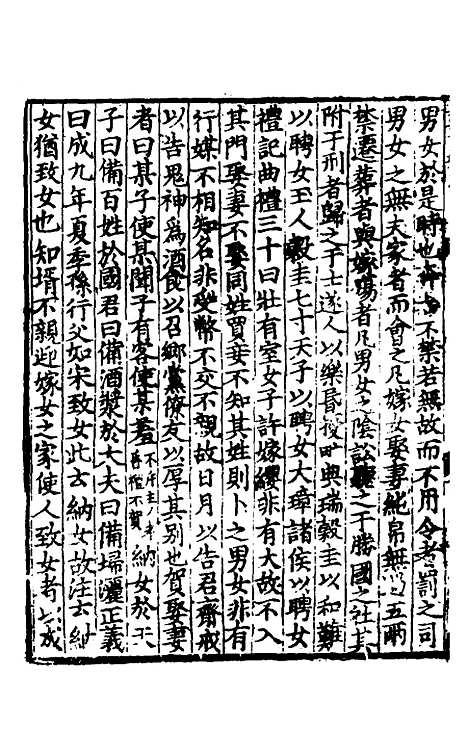 男女於是時也奔者不禁若無故而不用令者罰之司
男女之無夫家者而會之凡嫁女娶妻純帛無過五兩
禁遷葬者與嫁殤者凡男女之陰訟聽之于勝國之社其
附于刑者歸之于士遂人以樂昏擾甿典瑞穀圭以和難
以聘女玉人穀圭七寸天子以聘女大璋諸侯以聘女
禮記曲禮三十曰壯有室女子許嫁纓非有大故不入
其門娶妻不娶同姓買妾不知其姓則卜之男女非有
行媒不相知名非受幣不交不親故日月以告君齋戒
以告鬼神爲酒食以召鄉黨僚友以厚其别也賀娶妻
者曰某子使某聞子有客使某羞 納女於天
子曰備百姓於國君曰備酒漿於大夫曰備埽灑正義
曰成九年夏季孫行父如宋致女此云納女故注云納
女猶致女也知壻不親迎嫁女之家使人致女者以成